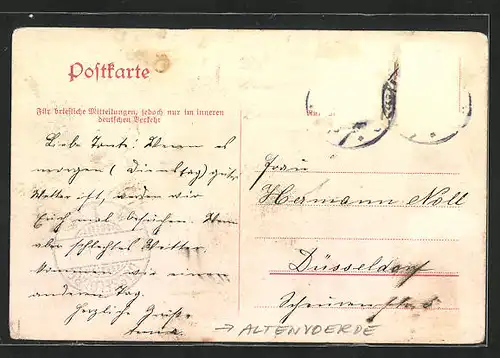 Postkarte
Für briefliche Mitteilungen, jedoch nur im inneren
deutschen Verkehr
Liebe Tante! Wenn es
morgen (Dienstag) gutes
Wetter ist, werden wir
Euch mal besuchen. Wenn
aber schlechtes Wetter
kommen wir einen
andern Tag.
Herzliche Grüße
Frau
Hermann Noll
Düsseldorf
→ ALTENVOERDE